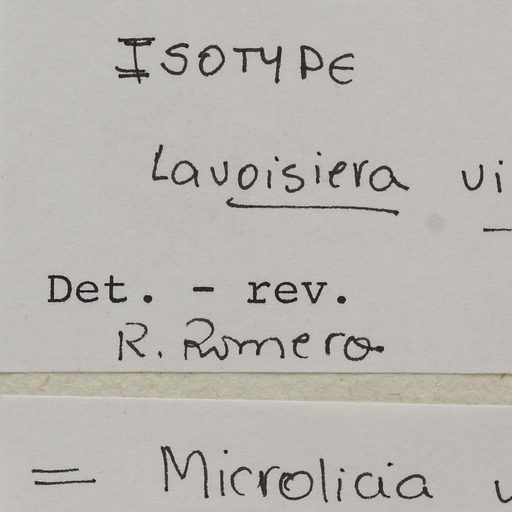 ISOTYPE
Lavoisiera vi
Det. - rev.
R. Romero
= Microlicia